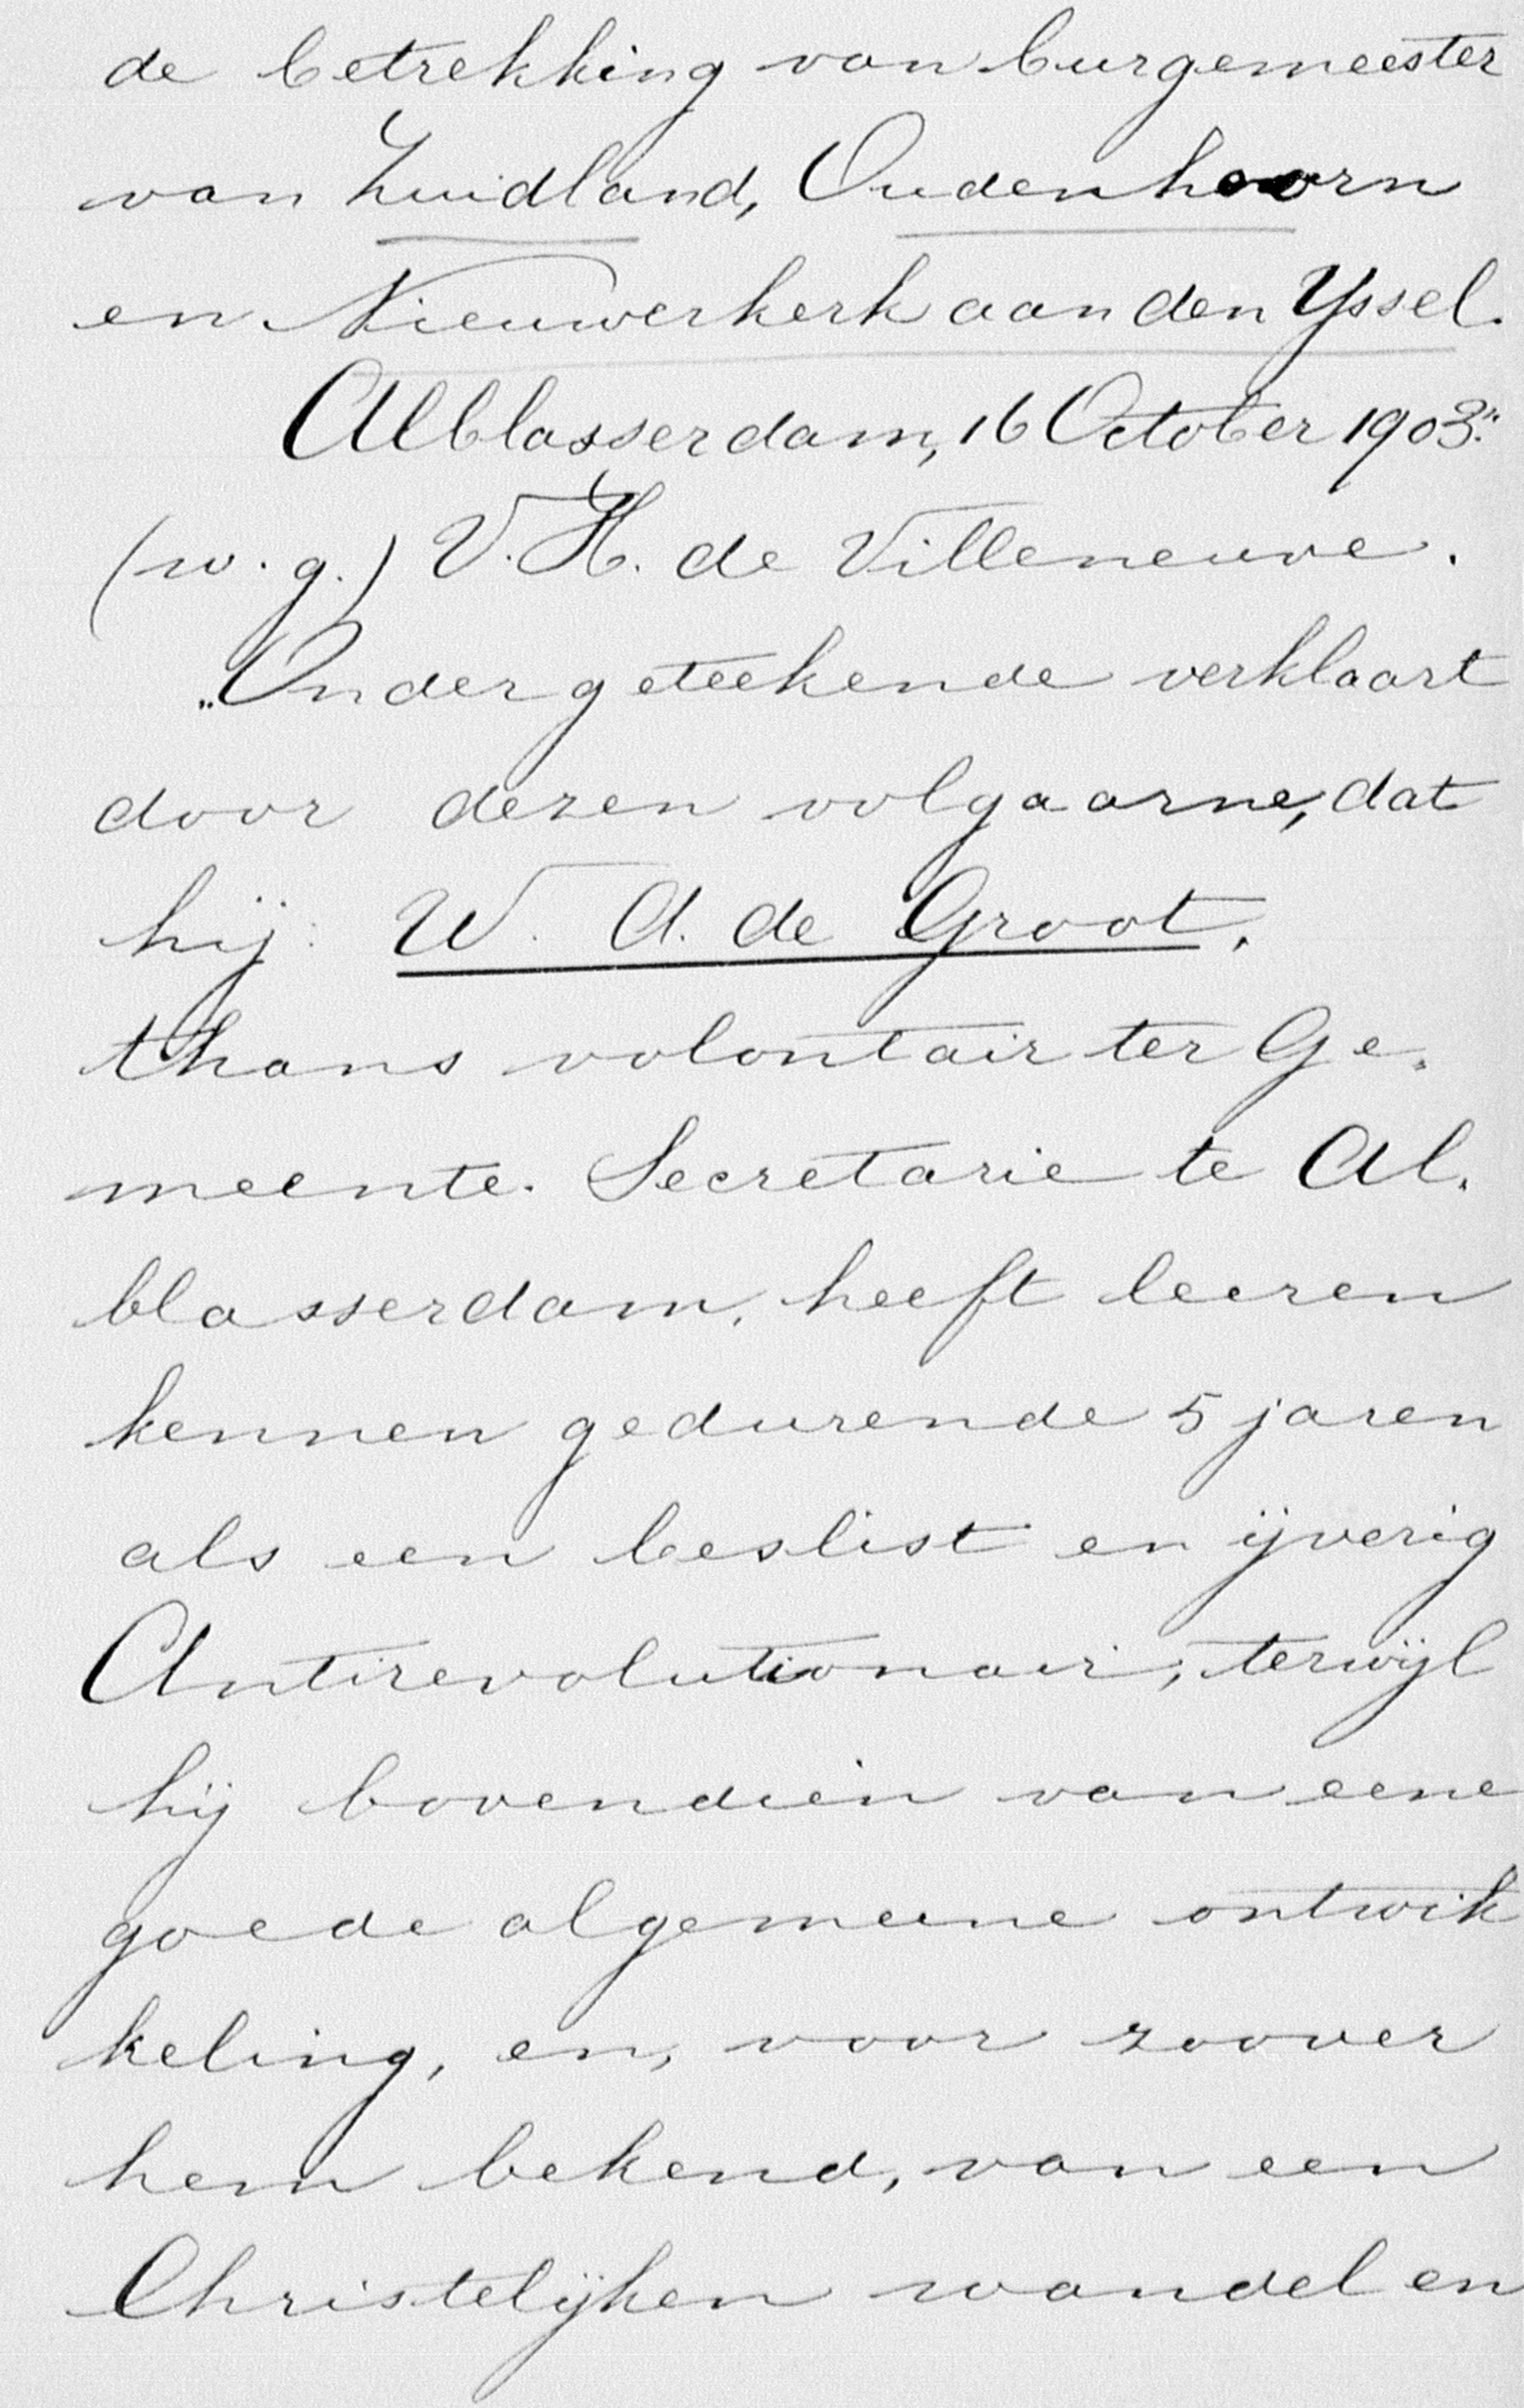 de betrekking van burgemeester
van Zuidland, Oudenhoorn
en Nieuwerkerk aan den Yssel.
Alblasserdam, 16 October 1903."
(w.g.) V. H. de Villeneuve.
„Ondergeteekende verklaart
door dezen volgaarne, dat
hij: W. A. de Groot.
thans volontair ter Ge-
meente-Secretarie te Al-
blasserdam, heeft leeren
kennen gedurende 5 jaren
als een beslist en ijverig
Antirevolutionair; terwijl
hij bovendien van eene
goede algemeene ontwik
keling, en, voor zoover
hem bekend, van een
Christelijken wandel en